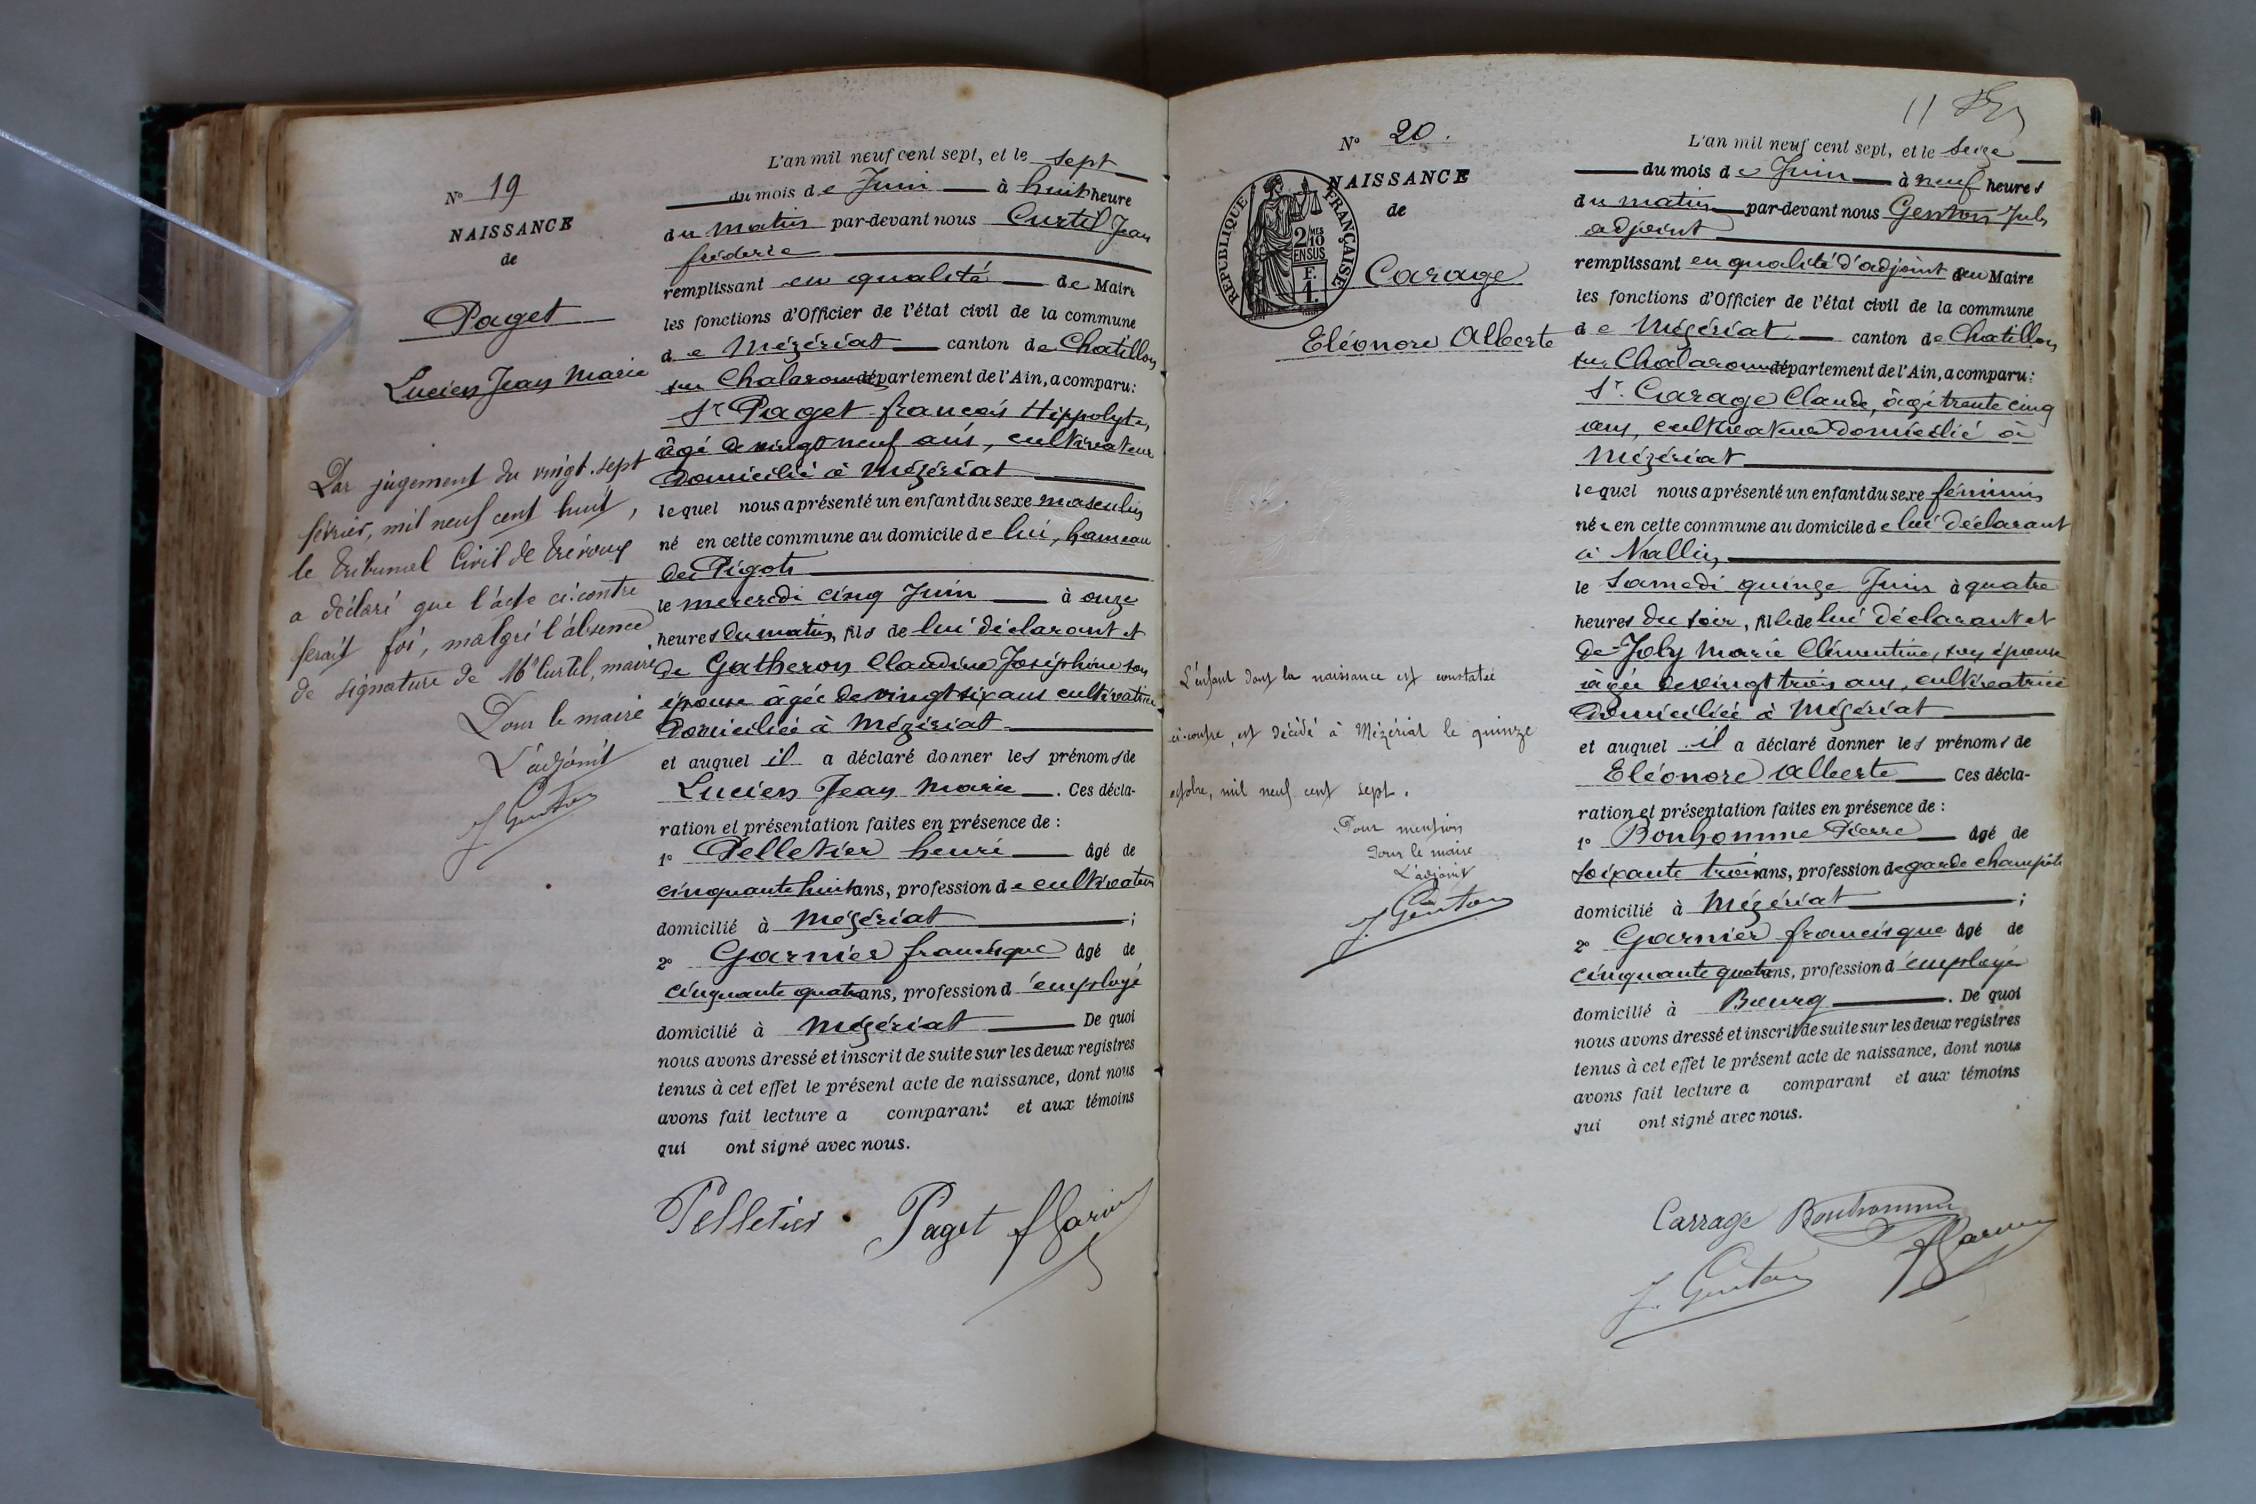 N° 19
NAISSANCE
de
Paget
Lucien Jean Marie
Par jugement du vingt-sept
février, mil neuf cent huit,
le Tribunal Civil de Trévoux
a déclaré que l'acte ci-contre
ferait foi, malgré l'absence
de signature de Mr Curtil, maire
Pour le maire
L'adjoint
J. Genton
L'an mil neuf cent sept, et le sept
du mois de Juin à huit heure
du matin par-devant nous Curtil Jean
fréderic
remplissant en qualité de Maire
les fonctions d'Officier de l'état civil de la commune
de Mézériat canton de Chatillon
sur Chalaronne département de l'Ain, a comparu:
Sr Paget françois Hippolyte,
âgé de vingt neuf ans, cultivateur
domicilié à Mézériat
lequel nous a présenté un enfant du sexe masculin
né en cette commune au domicile de lui, hameau
des Pigots
le mercredi cinq Juin à onze
heures du matin, fils de lui déclarant et
de Gatheron Claudine Joséphine son
épouse agée de vingt six ans cultivatrice
domiciliée à Mézériat
et auquel il a déclaré donner les prénoms de
Lucien Jean Marie. Ces décla-
ration et présentation faites en présence de :
1° Pelletier henri âgé de
cinquante huit ans, profession de cultivateur
domicilié à Mézériat ;
2° Garnier francisque âgé de
cinquante quatre ans, profession d'employé
domicilié à Mézériat De quoi
nous avons dressé et inscrit de suite sur les deux registres
tenus à cet effet le présent acte de naissance, dont nous
avons fait lecture a comparant et aux témoins
qui ont signé avec nous.
Pelletier Paget f Garnier
11
N° 20.
NAISSANCE
de
RÉPUBLIQUE FRANÇAISE
2/10 MES
EN SUS
F.
1.
Carage
Eléonore Alberte
L'enfant dont la naissance est constatée
ci-contre, est décédé à Mézériat le quinze
octobre, mil neuf cent sept.
Pour mention
Pour le maire
L'adjoint
J. Genton
L'an mil neuf cent sept, et le seize
du mois de Juin à neuf heures
du matin par-devant nous Genton Jules
adjoint
remplissant en qualité d'adjoint au Maire
les fonctions d'Officier de l'état civil de la commune
de Mézériat canton de Chatillon
sur Chalaronne département de l'Ain, a comparu:
Sr. Carage Claude, âgé trente cinq
ans, cultivateur domicilié à
Mézériat
lequel nous a présenté un enfant du sexe féminin
née en cette commune au domicile de lui déclarant
à
le Samedi quinze Juin à quatre
heures du soir, fille de lui déclarant et
de Joly Marie Clémentine, son épouse
agée de vingt trois ans, cultivatrice
domiciliée à Mézériat
et auquel il a déclaré donner les prénoms de
Eléonore Alberte Ces décla-
ration et présentation faites en présence de :
1° Bonhomme Pierre âgé de
soixante trois ans, profession de garde champêtre
domicilié à Mézériat ;
2° Garnier francisque âgé de
cinquante quatre ans, profession d'employé
domicilié à Bourg. De quoi
nous avons dressé et inscrit de suite sur les deux registres
tenus à cet effet le présent acte de naissance, dont nous
avons fait lecture a comparant et aux témoins
qui ont signé avec nous.
Carrage Bonhomme
J. Genton f Garnier